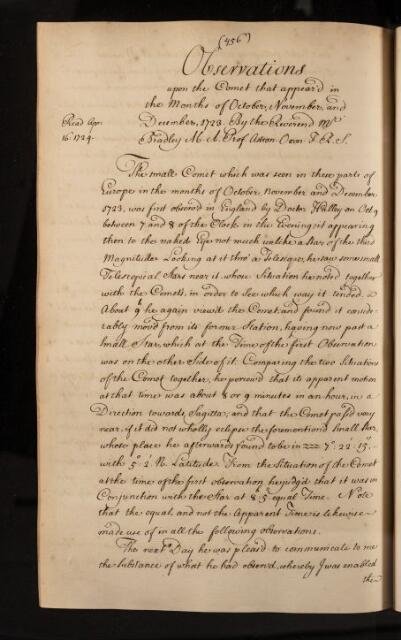 (456)
Observations
upon the Comet that appear'd in
the Months of October, November, and
December, 1723. By the Reverend Mr
Bradley M. A. Prof. Astron. Oxon. F. R. S.
Read Apr.
16. 1724.
The small Comet which was seen in these parts of
Europe in the months of October, November and December
1723, was first observ'd in England by Doctor Halley on Oct. 9
between 7 and 8 of the Clock in the Evening; it appearing
then to the naked Eye not much unlike a Star of the third
Magnitude. Looking at it thro' a Telescope, he saw some small
Telescopical Stars near it, whose Situation he noted together
with the Comets, in order to see which way it tended.
About 9h he again view'd the Comet and found it consider=
=rably mov'd from its former Station, having now past a
small Star, which at the Time of the first Observation
was on the other Side of it. Comparing the two Situations
of the Comet together, he perceiv'd that its apparent motion
at that time was about 8 or 9 minutes in an hour, in a
Direction towards Sagitta; and that the Comet pass'd very
near, if it did not wholly eclipse the forementiond small Star,
whose place he afterwards found to be in ♒ 7°. 22'. 15".
with 5°. 2'. N. Latitude. From the Situation of the Comet
at the time of the first observation he judg'd that it was in
Conjunction with the Star at 8. 5 equal Time. Note
that the equal and not the Apparent Time is likewise
made use of in all the following observations.
The next Day he was pleas'd to communicate to me
the substance of what he had observd, whereby I was enabled
the